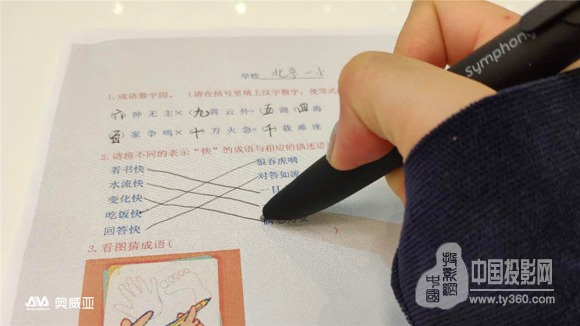 学校 北京一小
1.成语数字园。 (请在括号里填上汉字数字，使等式成
(六)神无主×(九)霄云外=(五)湖(四)海
(百)家争鸣×(十)万火急=(千)载难逢
2.请将不同的表示“快”的成语与相应的描述连
看书快 狼吞虎咽
水流快 对答如流
变化快 一日
吃饭快
回答快
3.看图猜成语( )
symphony
AVA 奥威亚
投影網中國
中国投影网
www.ty360.com